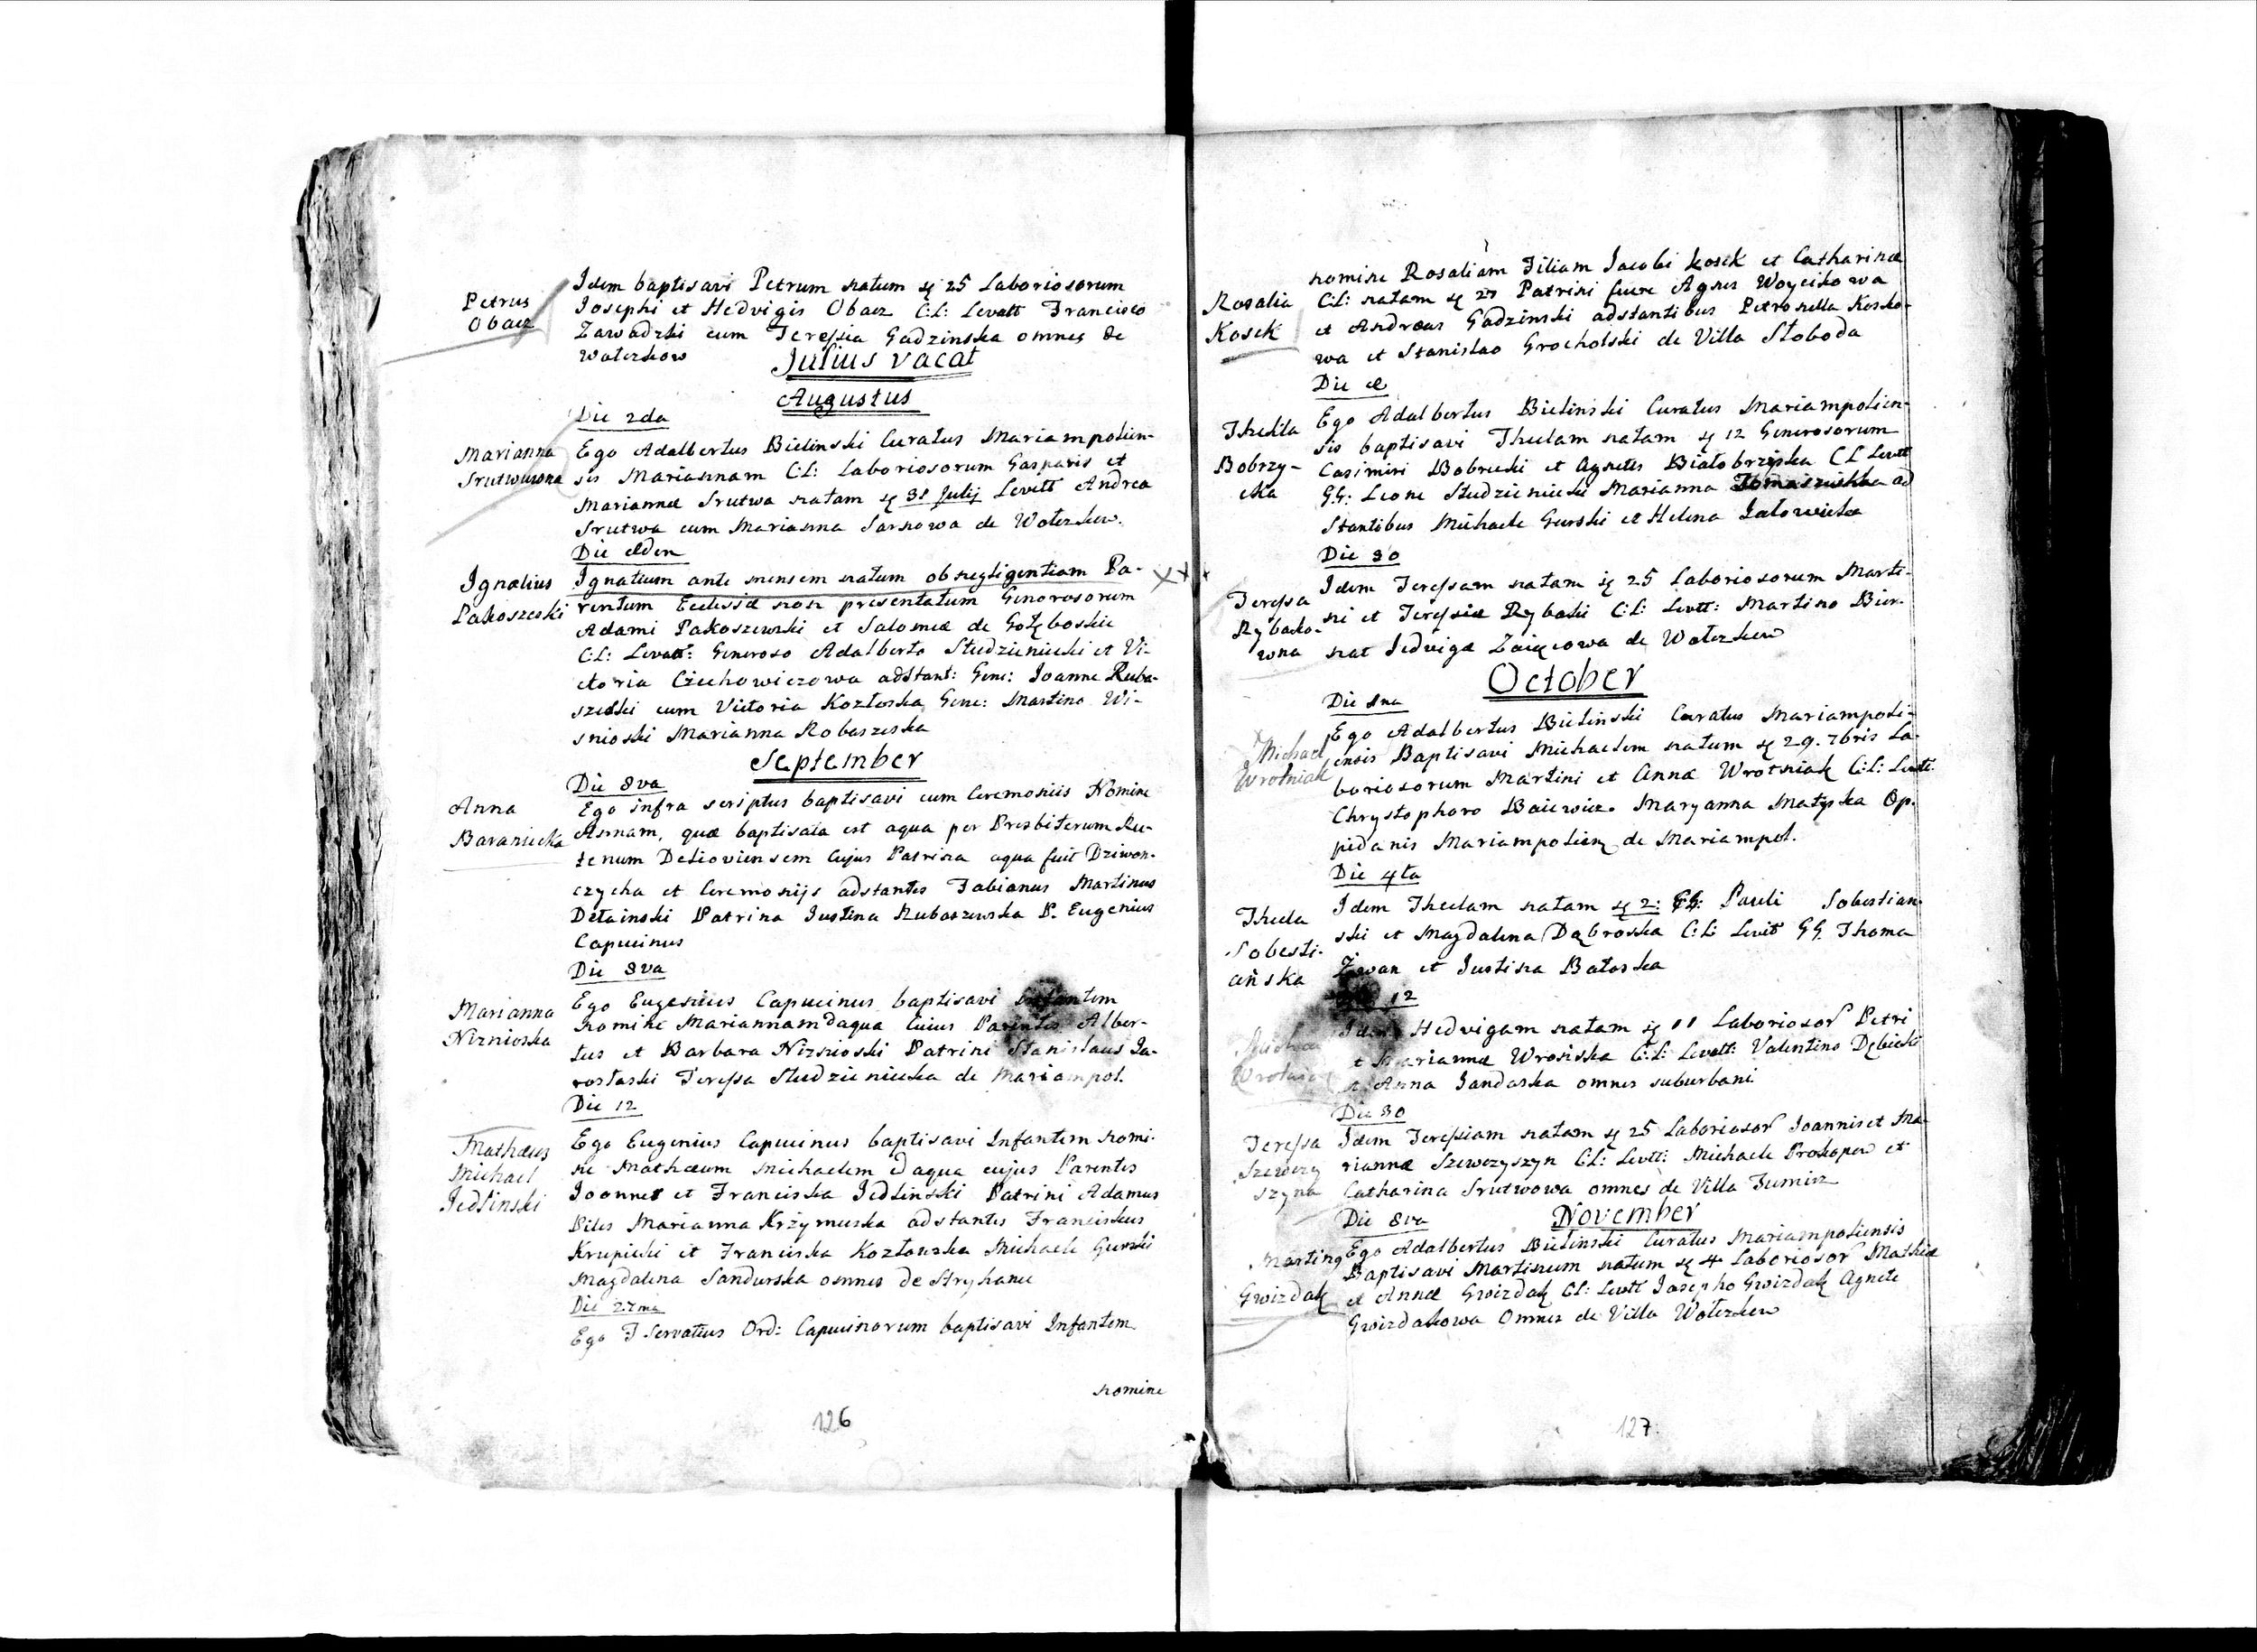 Idem baptisavi Petrum natum ę 25 Laboriosorum
Petrus
Obacz
Josephi et Hedvigis Obacz C:L: Levatt Francisco
Zawadzki cum Teressia Gadzinska omnes de
Wołczkow
Julius vacat
Augustus
Die 2da
Marianna
Srutwuwna
Ego Adalbertus Bielinski Curatus Mariampolien-
sis Mariannam C:L: Laboriosorum Gasparis et
Mariannæ Srutwa natam ę 31 Julij Levtt Andrea
Srutwa cum Marianna Sarnowa de Wołczkow.
Die eden
Ignatius
Pakoszeski
Ignatium ante mensem natum ob negligentiam Pa-
rentum Eclesiæ non presentatum Generosorum
Adami Pakoszewski et Salomeæ de Gołęboskie
C:L: Levatt: Generoso Adalberto Studzieniecki et Vi-
ctoria Czechowiczowa adstant: Gene: Joanne Ruba-
szeski cum Victoria Kozłoska Gene: Martino Wi-
snioski Marianna Robaszeska
September
Die 8va
Anna
Baraniecka
Ego infra scriptus baptisavi cum Ceremoniis Nomine
Annam, quæ baptisata est aqua per Presbiterum Ru-
tenum Delioviensem Cujus Patrina aqua fuit Dziwon-
czycha et Ceremonijs adstantes Fabianus Martinus
Detainski Patrina Justina Rubaszewska P. Eugenius
Capucinus
Die 8va
Marianna
Niznioska
Ego Eugenius Capucinus baptisavi Infantem
Nomine Mariannam d aqua Cuius Parentes Alber-
tus et Barbara Niznioski Patrini Stanislaus Ja-
rosłaski Teressa Studzieniecka de Mariampol.
Die 12
Mathæus
Michael
Jedlinski
Ego Eugenius Capucinus baptisavi Infantem nomi-
ne Mathæum Michaelem d aqua cujus Parentes
Joannes et Franciska Jedlinski Patrini Adamus
Piles Marianna Krzymuska adstantes Franciskus
Krupicki et Franciska Kozłowska Michaele Gurski
Magdalena Sandurska omnes de Stryhance
Die 27ma
Ego F Servatius Ord: Capucinorum baptisavi Infantem
nomine
126
nomine Rosaliam Filiam Jacobi Kosek et Catharinæ
Rosalia
Kosek
C:L: natam ę 27 Patrini fuere Agnes Woycikowa
et Andreas Gadzinski adstantibus Petronella Kosko-
wa et Stanislao Grocholski de Villa Słoboda
Die e
Thekla
Bobrzy-
cka
Ego Adalbertus Bielinski Curatus Mariampolien-
sis baptisavi Theclam natam ę 12 Generosorum
Casimiri Bobrecki et Agnetis Białobrzeska C L Levtt
GG: Leone Studzieniecki Marianna ad
stantibus Michaele Gurski et Helena Jałowicka
Die 30
Teressa
Rybako-
wna
Idem Teressam natam ę 25 Laboriosorum Marti-
ni et Teressiæ Rybaki C:L: Levtt: Martino Bier-
nat Jedviga Zaięcowa de Wołczkow
October
Die 1ma
Michael
Wrotniak
Ego Adalbertus Bielinski Curatus Mariampoli-
ensis Baptisavi Michaelem natum ę 29. 7bris La-
boriosorum Martini et Annæ Wrotniak C:L: Levtt:
Chrystophoro Baiewicz. Maryanna Matyska Op-
pidanis Mariampolien de Mariampol.
Die 4ta
Thecla
Sobesti-
ańska
Idem Theclam natam ę 2: GG: Pauli Sobestian-
ski et Magdalena Dąbroska C:L: Levtt GG. Thoma
Żwan et Justina Batoska
12
Wrotnia
Idem Hedvigam natam ę 11 Laborioso𝑟 Petri
et Mariannæ Wrosiska C:L: Levatt: Valentino Dębicki
et Anna Jandaska omnes suburbani
Die 30
Teressa
Szewczy
szyna
Idem Teressiam natam ę 25 Laborioso𝑟 Joannis et Ma-
riannæ Szewczyszyn C:L: Levtt: Michaele Prokopew et
Catharina Srutwowa omnes de Villa Tumirz
Die 8va November
Martinꝯ
Gwizdak
Ego Adalbertus Bielinski Curatus Mariampoliensis
Baptisavi Martinum natum ę 4 Laborioso𝑟 Mathiæ
et Annæ Gwizdak CL: Levtt Josepho Gwizdak Agnete
Gwizdakowa Omnes de Villa Wołczkew
127